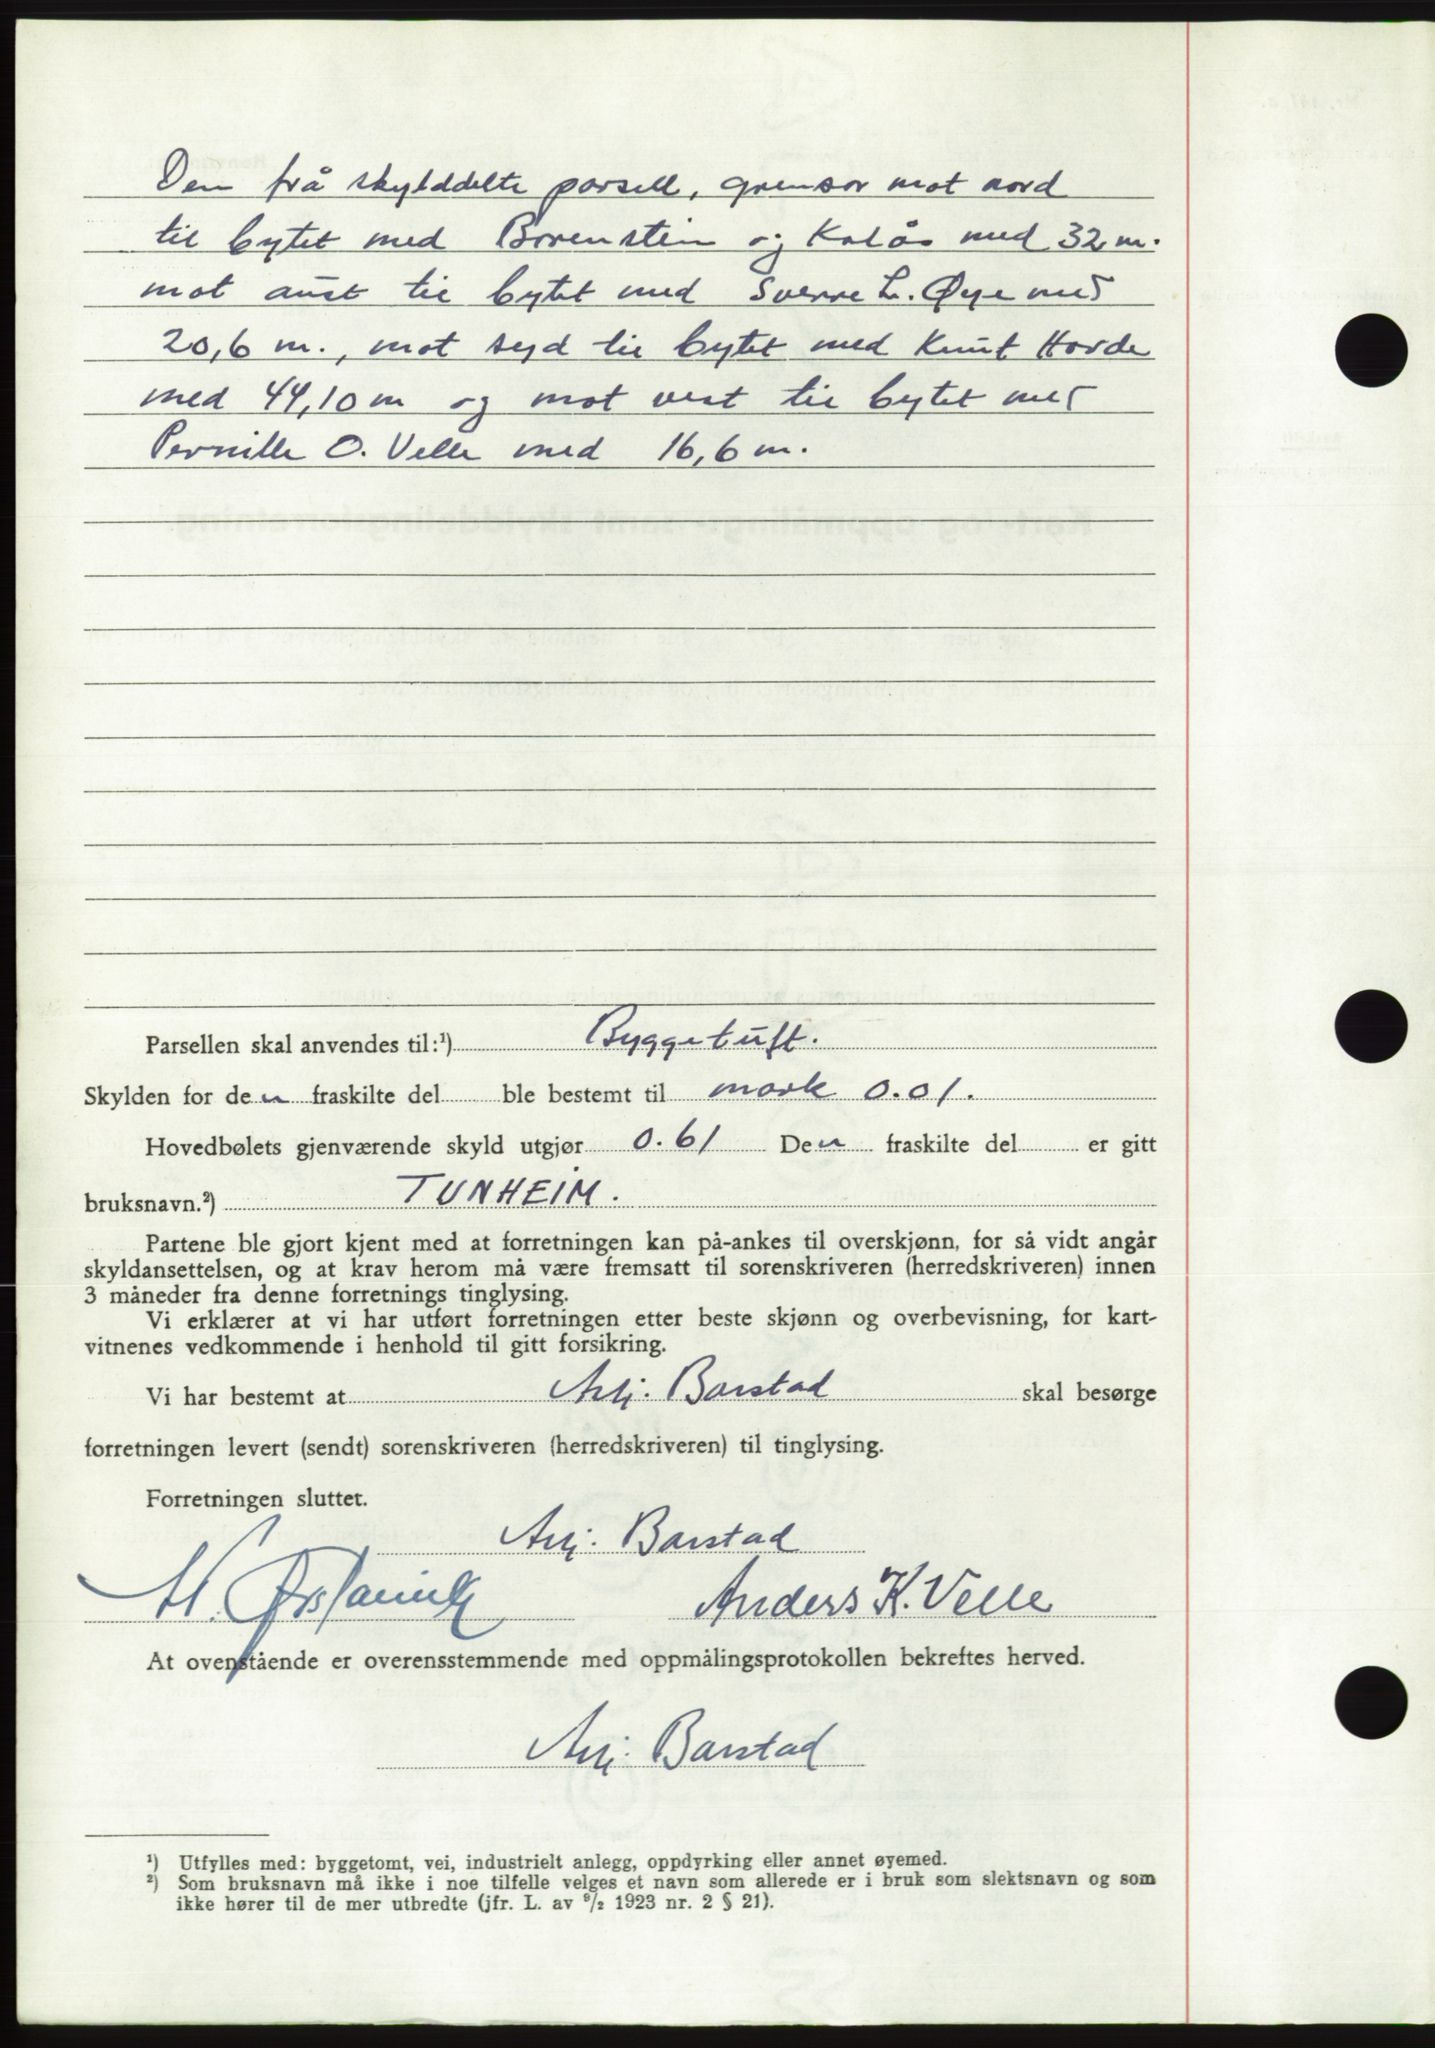 Den frå skylddelte parsell, grensar mot nord
til bytet med Borenstein og Kalås med 32 m.
mot aust til bytet med Sverre L. Øye med
20,6 m., mot syd til bytet med Knut Hovde
med 44,10 m og mot vest til bytet med
Pernille O. Velle med 16,6 m.
Parsellen skal anvendes til:¹) Byggetuft.
Skylden for den fraskilte del ble bestemt til mark 0.01.
Hovedbølets gjenværende skyld utgjør 0.61 Den fraskilte del er gitt
bruksnavn.²) TUNHEIM.
Partene ble gjort kjent med at forretningen kan på-ankes til overskjønn, for så vidt angår
skyldansettelsen, og at krav herom må være fremsatt til sorenskriveren (herredskriveren) innen
3 måneder fra denne forretnings tinglysing.
Vi erklærer at vi har utført forretningen etter beste skjønn og overbevisning, for kart-
vitnenes vedkommende i henhold til gitt forsikring.
Vi har bestemt at Barstad skal besørge
forretningen levert (sendt) sorenskriveren (herredskriveren) til tinglysing.
Forretningen sluttet.
Barstad
Anders K. Velle
At ovenstående er overensstemmende med oppmålingsprotokollen bekreftes herved.
Barstad
¹) Utfylles med: byggetomt, vei, industrielt anlegg, oppdyrking eller annet øyemed.
²) Som bruksnavn må ikke i noe tilfelle velges et navn som allerede er i bruk som slektsnavn og som
ikke hører til de mer utbredte (jfr. L. av ⁹/₂ 1923 nr. 2 § 21).